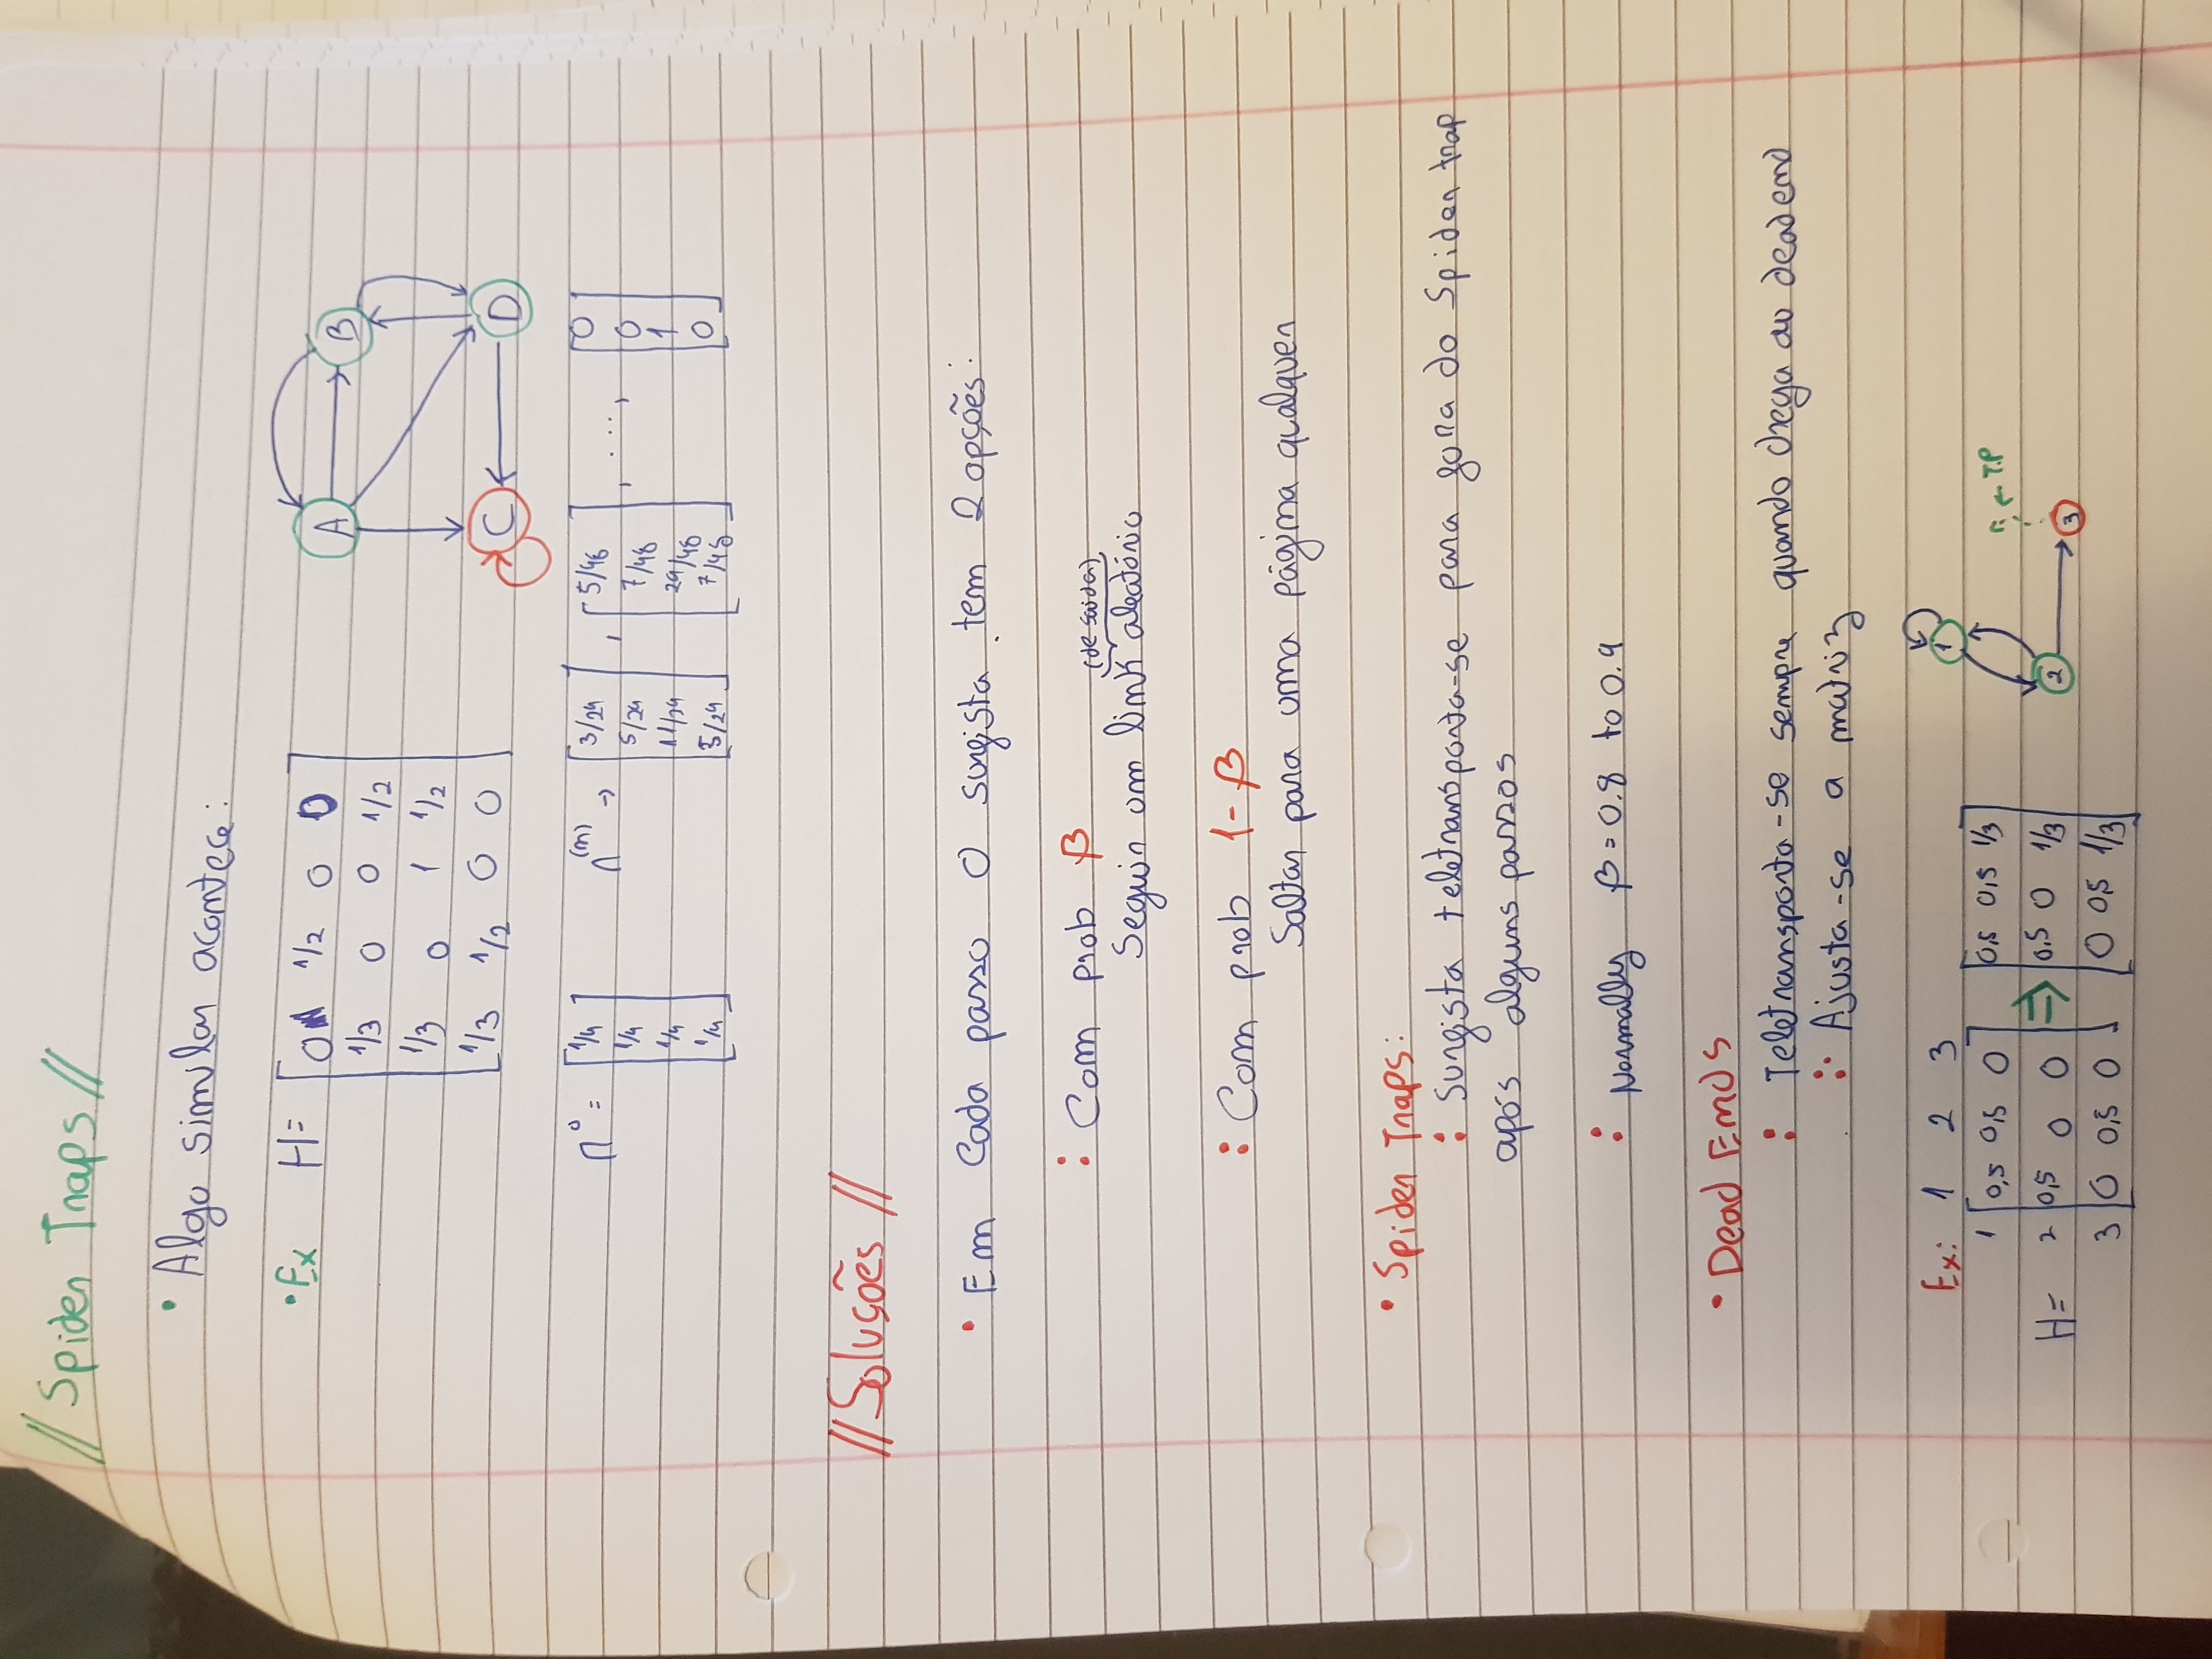 // Spider Traps //
• Algo similar acontece:
• Ex H= [0 1/2 0 0]
[1/3 0 0 1/2]
[1/3 0 1 1/2]
[1/3 1/2 0 0]
A B
C D
r⁰ = [1/4 1/4 1/4 1/4] r⁽ⁿ⁾ → [3/24 5/24 11/24 5/24] , [5/48 7/48 29/48 7/48] , ..., [0 0 1 0]
// Soluções //
• Em Cada passo O surfista tem 2 opções:
: Com prob β
(de saida)
Seguir um link aleatório
: Com prob 1-β
Saltar para uma página qualquer
• Spider Traps:
: Surfista teletransporta-se para fora do Spider trap
após alguns passos
: Normally β=0.8 to 0.9
• Dead Ends
: Teletransporta-se sempre quando chega ao dead end
∴ Ajusta-se a matriz
Ex: 1 2 3
1 [0,5 0,5 0] [0,5 0,5 1/3]
H= 2 [0,5 0 0] ⇒ [0,5 0 1/3]
3 [0 0,5 0] [0 0,5 1/3]
1
← T.P
2 3